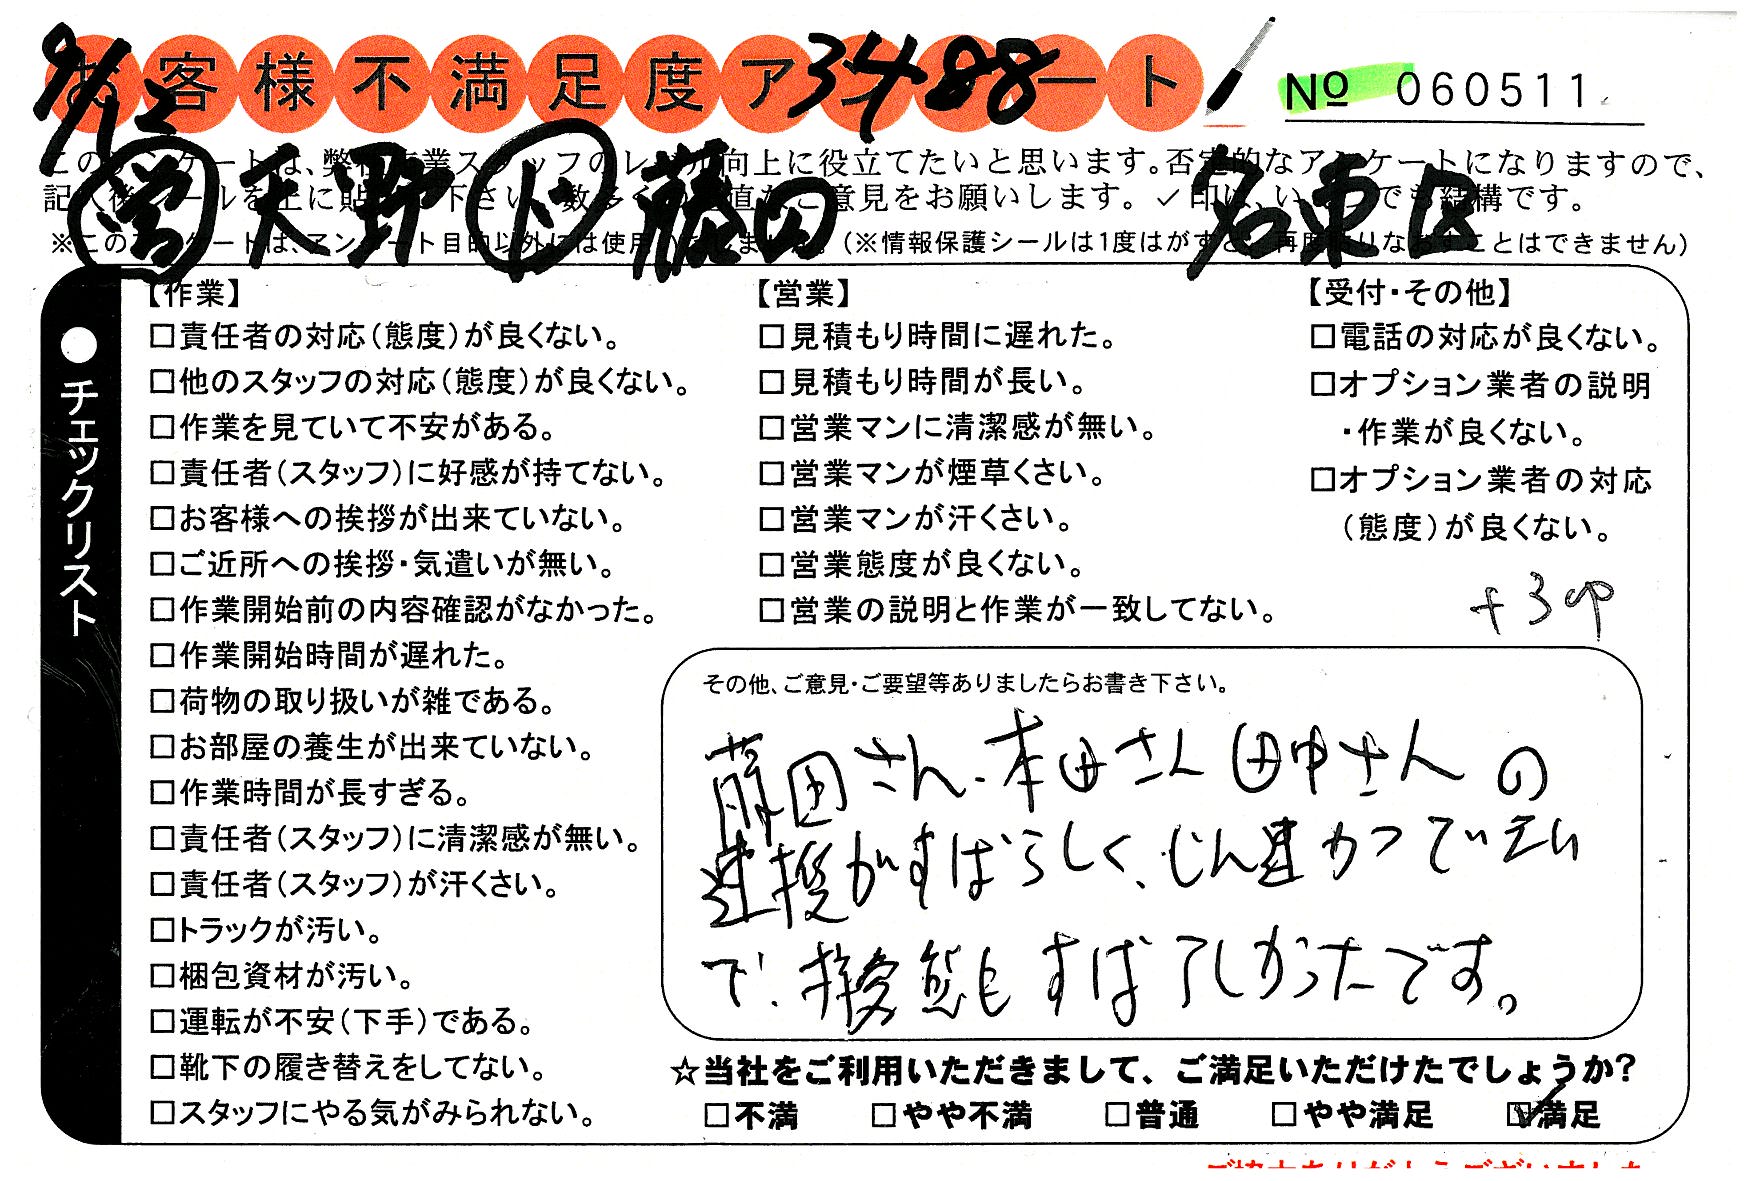 お客様不満足度アンケート
9/12
3488
No 060511
このアンケートは、弊社作業スタッフのレベル向上に役立てたいと思います。否定的なアンケートになりますので、
記入後シールを上に貼って下さい。数多くの正直なご意見をお願いします。✓印は、いくつでも結構です。
※このアンケートは、アンケート目的以外には使用いたしません。(※情報保護シールは1度はがすと、再度貼りなおすことはできません)
営 天野 作 藤田 名東区
●チェックリスト
【作業】
□責任者の対応(態度)が良くない。
□他のスタッフの対応(態度)が良くない。
□作業を見ていて不安がある。
□責任者(スタッフ)に好感が持てない。
□お客様への挨拶が出来ていない。
□ご近所への挨拶・気遣いが無い。
□作業開始前の内容確認がなかった。
□作業開始時間が遅れた。
□荷物の取り扱いが雑である。
□お部屋の養生が出来ていない。
□作業時間が長すぎる。
□責任者(スタッフ)に清潔感が無い。
□責任者(スタッフ)が汗くさい。
□トラックが汚い。
□梱包資材が汚い。
□運転が不安(下手)である。
□靴下の履き替えをしてない。
□スタッフにやる気がみられない。
【営業】
□見積もり時間に遅れた。
□見積もり時間が長い。
□営業マンに清潔感が無い。
□営業マンが煙草くさい。
□営業マンが汗くさい。
□営業態度が良くない。
□営業の説明と作業が一致してない。
【受付・その他】
□電話の対応が良くない。
□オプション業者の説明
・作業が良くない。
□オプション業者の対応
(態度)が良くない。
+3
その他、ご意見・ご要望等ありましたらお書き下さい。
藤田さん、本田さん 田中さん の
連携がすばらしく、じん速かつていねい
で、接客態もすばらしかったです。
☆当社をご利用いただきまして、ご満足いただけたでしょうか?
□不満 □やや不満 □普通 □やや満足 ☑満足
ご協力ありがとうございました